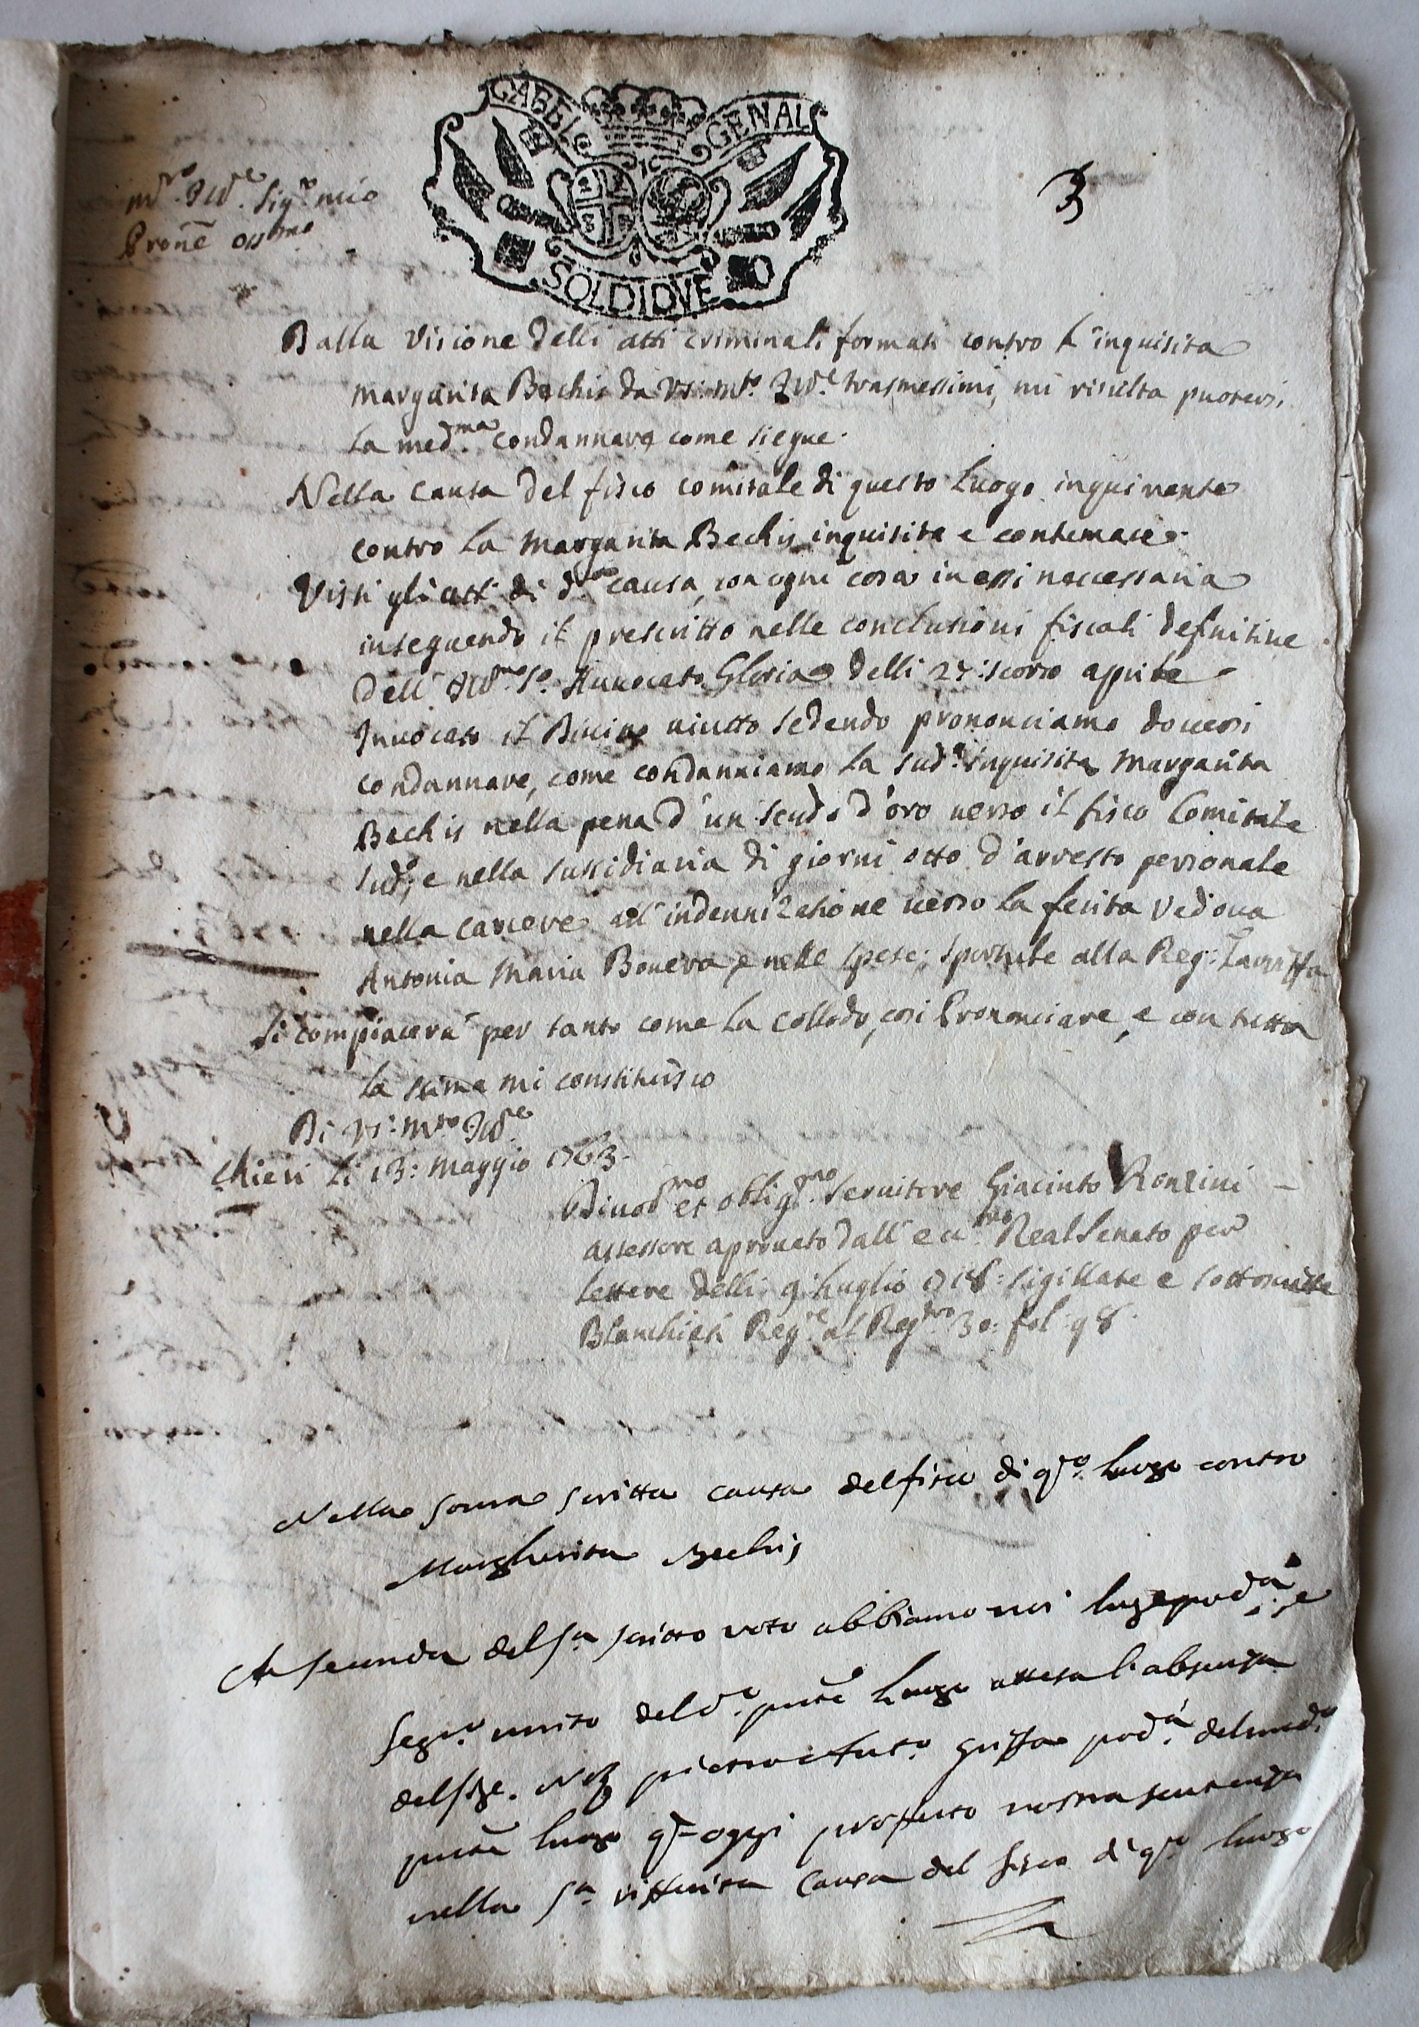 GABEL GENAL
SOLDI DVE
3
Sig.r mio
Dalla visione delli atti criminali formati contro l'inquisita
Margarita Bechis da V.S. M.to Ill.e trasmessimi, mi risulta puotersi
la med.ma condannare come siegue.
Nella causa del fisco comitale di questo Luogo inquirente
contro la Margarita Bechis inquisita e contumace.
Visti gli atti di d.a causa, con ogni cosa in essi neccessaria
inseguendo il prescritto nelle conclusioni fiscali definitive
dell' Ill.mo S.r Avvocato Gloria delli 27: scorso aprile
Invocato il Divino aiutto sedendo prononciamo doversi
condannare, come condanniamo la sud.a inquisita Margarita
Bechis nella pena d'un scudo d'oro verso il fisco Comitale
sud.o, e nella sussidiaria di giorni otto d'arresto personale
nella carcere all' indennizatione verso la ferita vedova
Antonia Maria Bovera e nelle spese: sportule alla Reg: Tariffa
Si compiacerà per tanto come la collodo, così Prononciare, e con tutta
la stima mi constituisco
Di V.S: M.to Ill.e
Chieri li 13: Maggio 1763.
Divot.mo et oblig.mo servitore Giacinto Ronzini
assessore aprovato dall' Real Senato per
lettere delli 9: Luglio sigillate e sottoscritte
Blanchieti Reg.e al Reg.tro 30: fol: 98.
Nella sovra scritta causa del fisco di q.o luogo contro
Margherita Bechis
A seconda del s.a scritto voto abbiamo noi e
Seg.ro unito del d.o luogo attesa l'absenza
del Griffa pod.à del med.o
luogo oggi proferto nostra sentenza
nella s.a riferita causa del fisco di q.o luogo